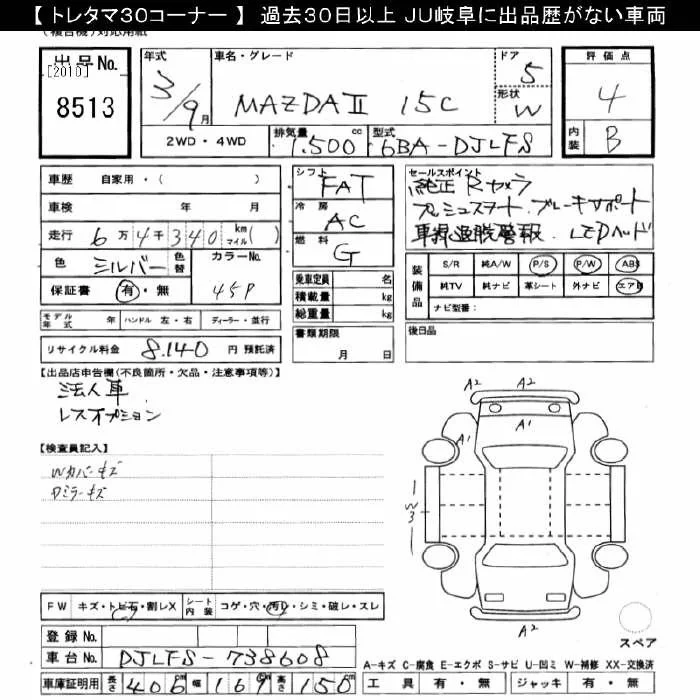 【 トレタマ30コーナー 】 過去30日以上 JU岐阜に出品歴がない車両
(複合機)対応用紙
出品No.
[2010]
8513
年式
3/9月
車名・グレード
MAZDAⅡ 15C
ドア
5
形状
W
評価点
4
内装
B
2WD・4WD
排気量
1.500cc
型式
6BA-DJLFS
車歴 自家用・( )
車検 年 月
走行 6万4千340 km マイル( )
色 シルバー 色替 カラーNo. 45P
保証書 有・無
モデル年式 年 ハンドル 左・右 ディーラー・並行
リサイクル料金 8.140 円 預託済
シフト
FAT
冷房
AC
燃料
G
乗車定員 名
積載量 kg
総重量 kg
書類期限
月 日
セールスポイント
純正 Rカメラ
プッシュスタート.ブレーキサポート
車線逸脱警報.LEDヘッド
装備品
S/R 純A/W P/S P/W ABS
純TV 純ナビ 革シート 外ナビ エアB
ナビ型番:
後日品
【出品店申告欄(不良箇所・欠品・注意事項等)】
法人車
レスオプション
【検査員記入】
Wカバーキズ
Dミラーキズ
A2 A2
A1
A1
W3
A2
スペア
FW キズ・トビ石・割レX シート内装 コゲ・穴・汚レ・シミ・破レ・スレ
登録No.
車台No. DJLFS-738608
車庫証明用 長さ 406cm 幅 169cm 高さ 150cm
A-キズ C-腐食 E-エクボ S-サビ U-凹ミ W-補修 XX-交換済
工具 有・無 ジャッキ 有・無